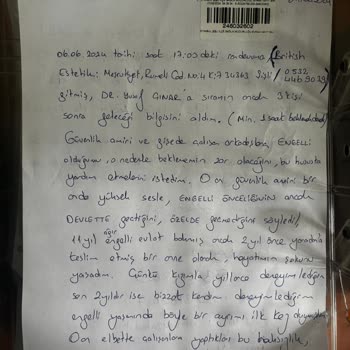 248032602
06.06.2024 tarihi saat 17:00 deki randevuma (British
Estetik: Mesrutiyet, Rumeli Cad No:4 K:7 34363 Şişli / 0532
gitmiş, DR. ÇINAR'a sıramın ancak 3 kişi
sonra geleceği bilgisini aldım. (Min. 1 saat beklenecekmiş)
Güvenlik amiri ve gişede çalışan arkadaştan, ENGELLİ
olduğumu, o nedenle beklemenin zor olacağını, bu hususta
yardım etmeleri istedim. O an güvenlik amiri bir
anda yüksek sesle, ENGELLİ ÖNCELİĞİNİN ancak
DEVLETTE geçtiğini, ÖZELDE geçmediğini söyledi!
11 yıl ağır engelli evlat bakmış ancak 2 yıl önce yaradan'a
teslim etmiş bir anne olarak, hayatımın şokunu
yaşadım. Çünkü kızımla yıllarca deneyimlediğim
son 2 yıldır ise bizzat kendim deneyimlediğim
engelli yaşamında böyle bir ayrımı ilk kez duymuştum
O an elbette çalışanların yaptıkları bu